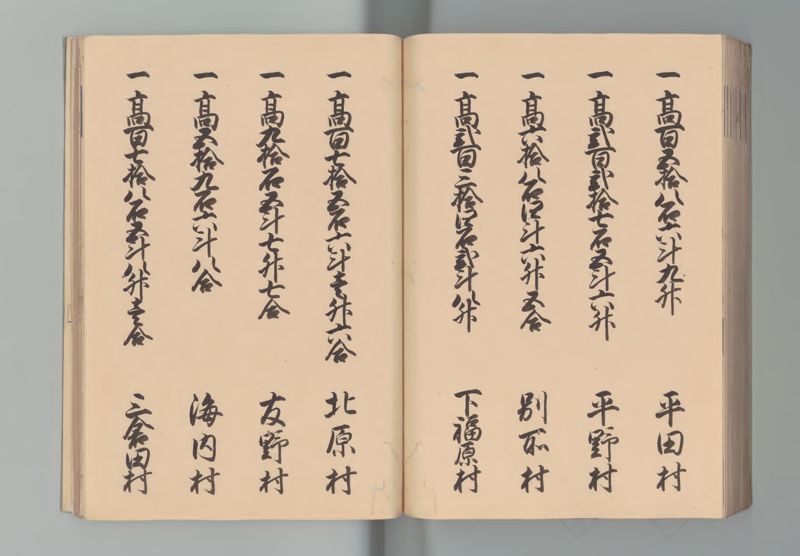 一 高百五拾八石六斗九升 平田村
一 高弐百弐拾七石五斗六升 平野村
一 高六拾八石四斗六升五合 別所村
一 高弐百三拾四石弐斗八升 下福原村
一 高百七拾五石六斗壱升六合 北原村
一 高九拾石五斗七升七合 友野村
一 高五拾九石六斗八合 海内村
一 高百七拾八石五斗八升壱合 三倉田村